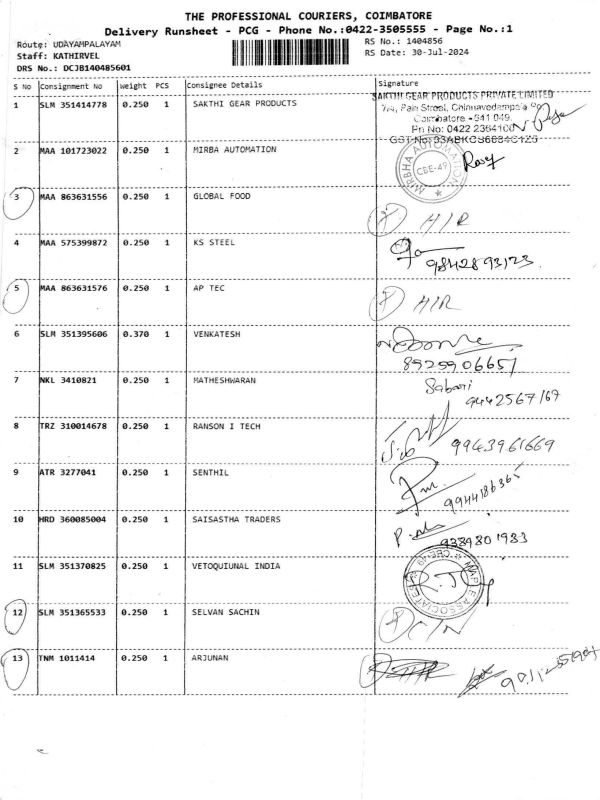 THE PROFESSIONAL COURIERS, COIMBATORE
Delivery Runsheet - PCG - Phone No.:0422-3505555 - Page No.:1
Route: UDAYAMPALAYAM
Staff: KATHIRVEL
DRS No.: DCJB140485601
RS No.: 1404856
RS Date: 30-Jul-2024
S No Consignment No Weight PCS Consignee Details Signature
1 SLM 351414778 0.250 1 SAKTHI GEAR PRODUCTS
SAKTHI GEAR PRODUCTS PRIVATE LIMITED
Coimbatore - 641 049.
2 MAA 101723022 0.250 1 MIRBA AUTOMATION
MIRBHA AUTOMATION CBE-49
3 MAA 863631556 0.250 1 GLOBAL FOOD
H/R
4 MAA 575399872 0.250 1 KS STEEL
9842893123
5 MAA 863631576 0.250 1 AP TEC
H/R
6 SLM 351395606 0.370 1 VENKATESH
8925906651
7 NKL 3410821 0.250 1 MATHESHWARAN
Sabari
9442567167
8 TRZ 310014678 0.250 1 RANSON I TECH
9943961669
9 ATR 3277041 0.250 1 SENTHIL
9944186365
10 HRD 360085004 0.250 1 SAISASTHA TRADERS
9389801983
11 SLM 351370825 0.250 1 VETOQUIUNAL INDIA
12 SLM 351365533 0.250 1 SELVAN SACHIN
13 TNM 1011414 0.250 1 ARJUNAN